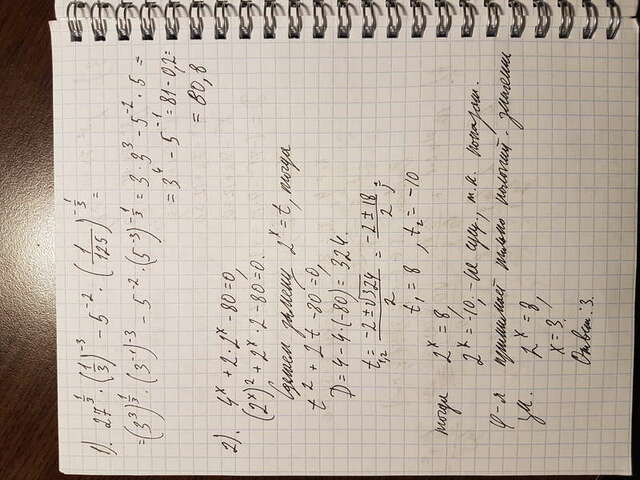 1). 27^(1/3) · (1/3)^(-3) - 5^(-2) · (1/125)^(-1/3) =
= (3^3)^(1/3) · (3^(-1))^(-3) - 5^(-2) · (5^(-3))^(-1/3) = 3 · 3^3 - 5^(-2) · 5 =
= 3^4 - 5^(-1) = 81 - 0,2 =
= 80,8
2). 4^x + 2 · 2^x - 80 = 0,
(2^x)^2 + 2^x · 2 - 80 = 0.
Сделаем замену 2^x = t, тогда
t^2 + 2t - 80 = 0,
D = 4 - 4 · (-80) = 324.
t_1,2 = (-2 ± √324)/2 = (-2 ± 18)/2 ;
t_1 = 8 , t_2 = -10
тогда 2^x = 8,
2^x = -10, - не сущ., т.к. показат.
ф-я принимает только положит. значения
2^x = 8,
x = 3.
Ответ: 3.